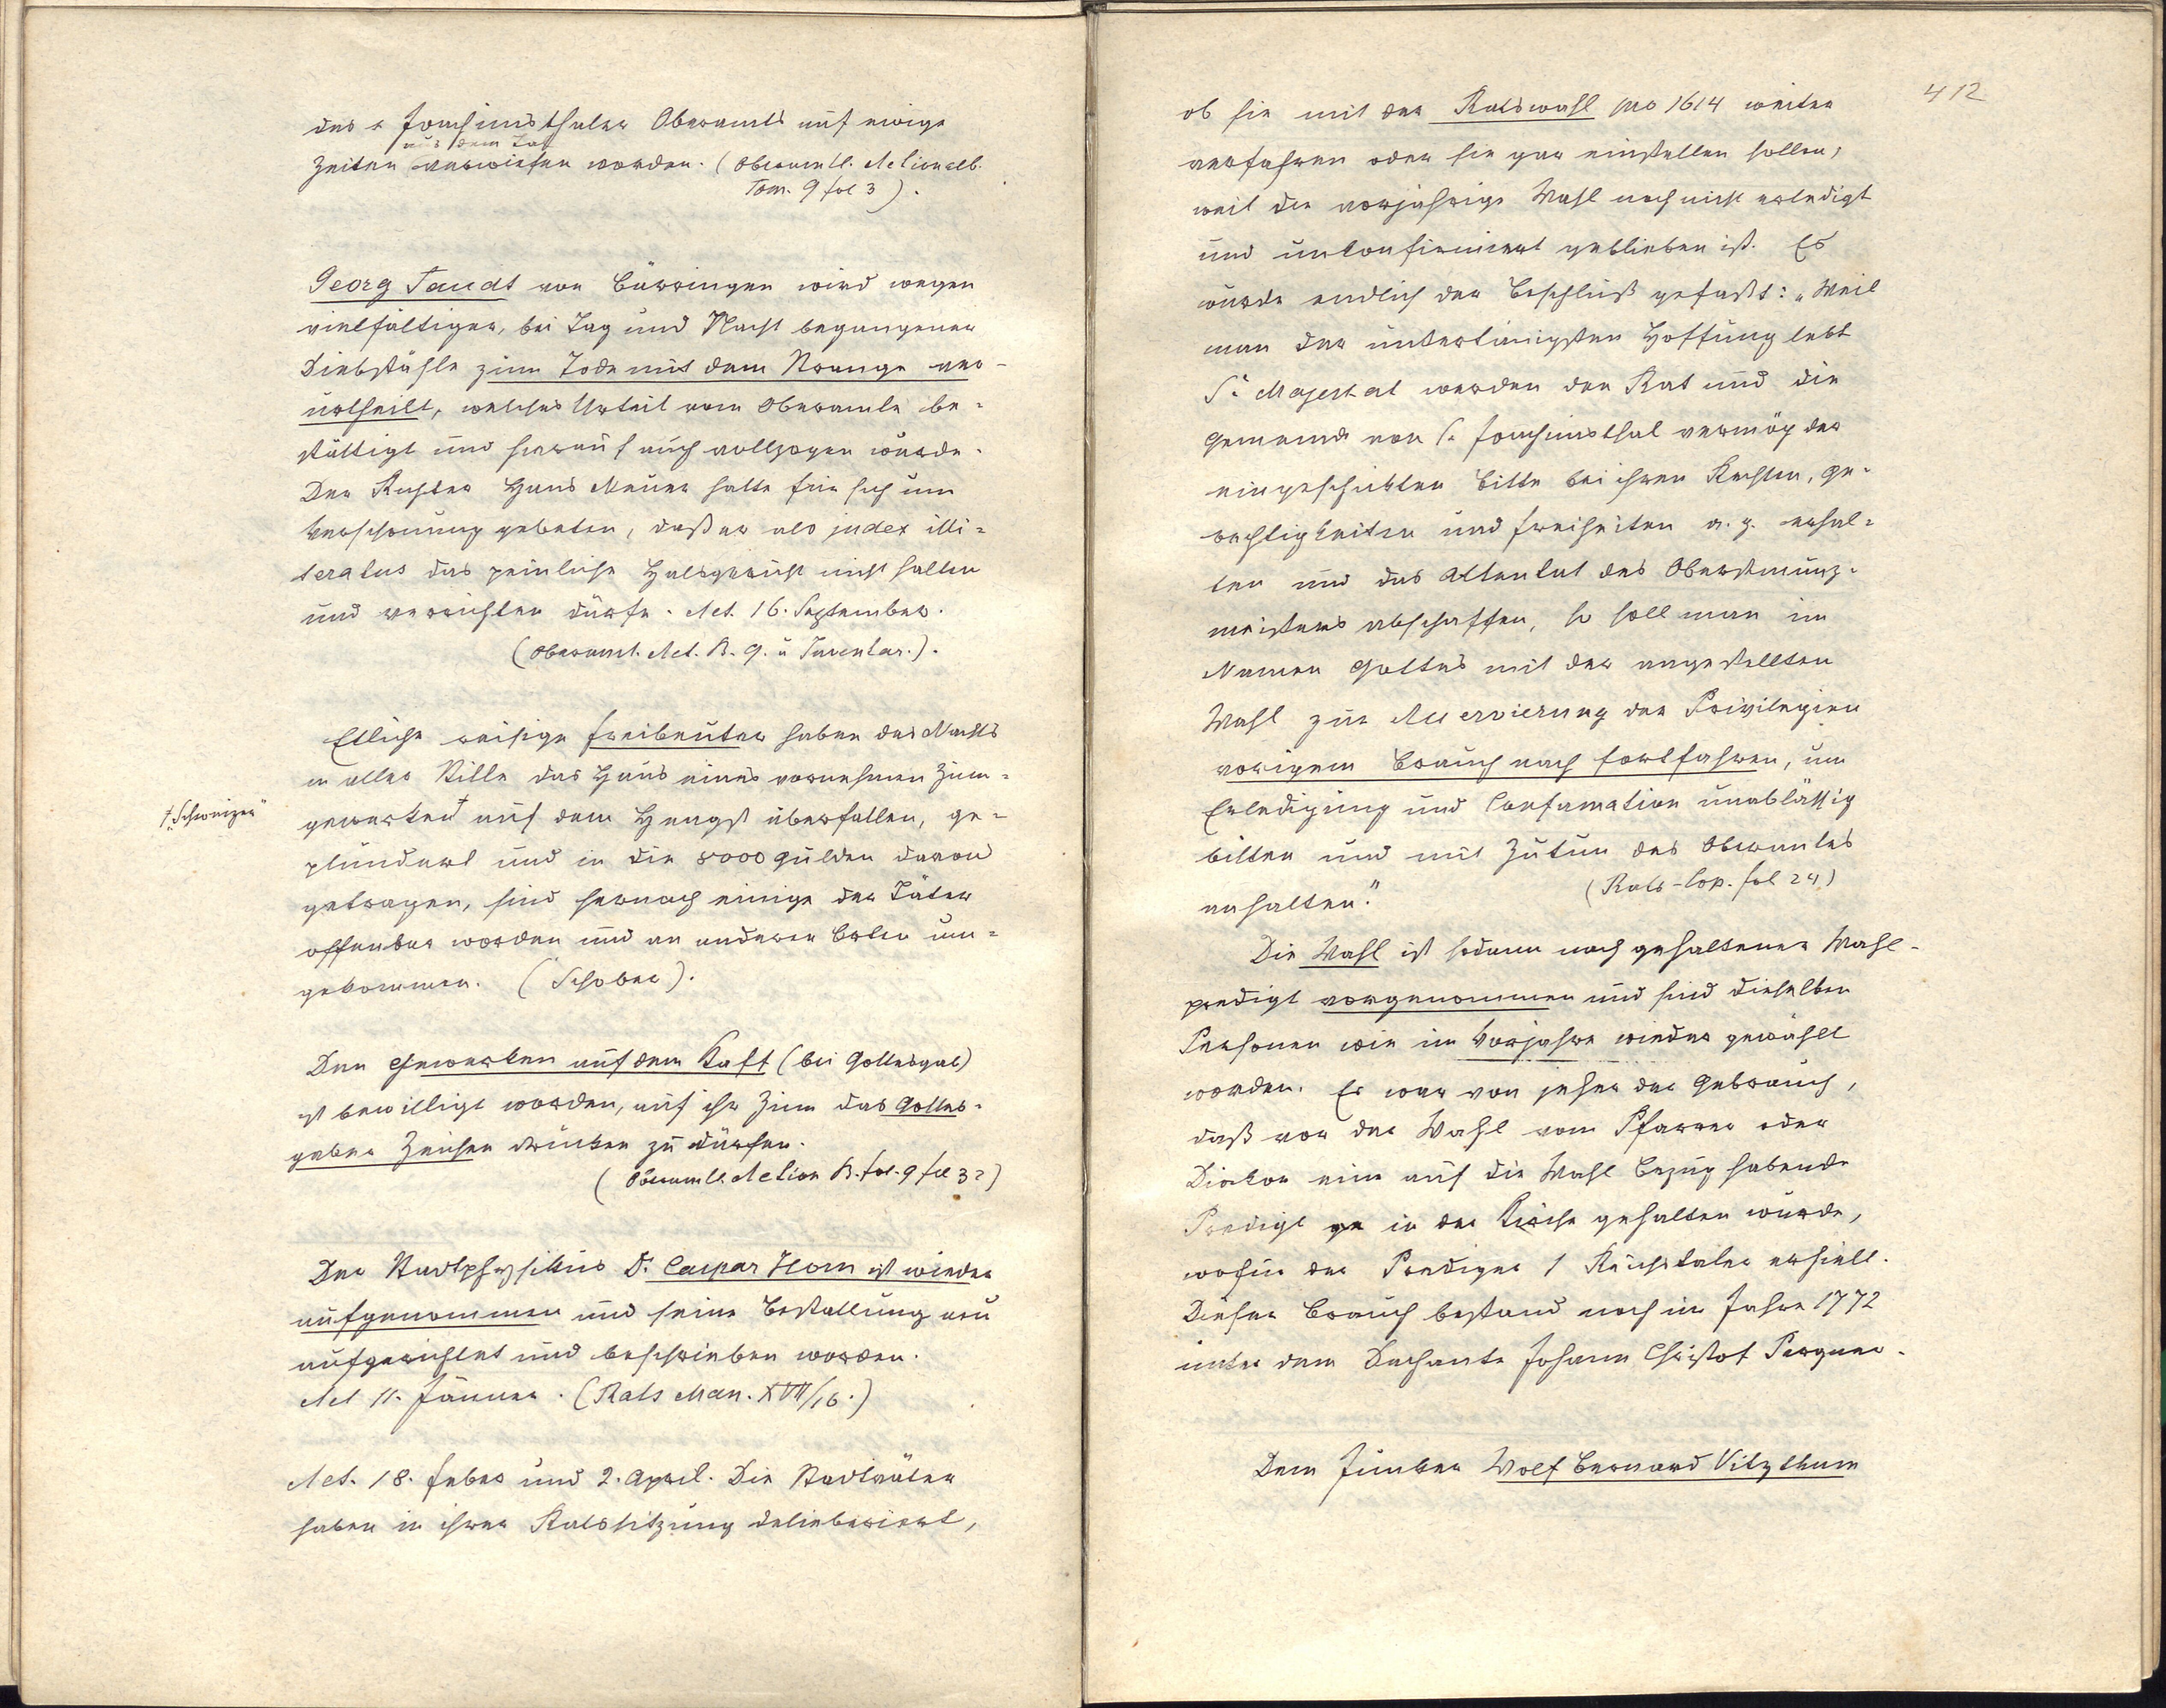 des St. Joachimsthaler Oberamts auf ewige
aus dem Tal
Zeiten verwiesen worden. (Oberamtl. Actionalb.
Tom. 9 fol 3).
Georg Taudt von Bärringen wird wegen
vielfältiger, bei Tag und Nacht begangener
Diebstähle zum Tode mit dem Strange ver-
urtheilt, welches Urteil vom Oberamte be-
stättigt und hierauf auch vollzogen wurde.
Der Richter Hans Meuer hatte für sich um
Verschonung gebeten, daß er als judex illi-
teratus das peinliche Halsgericht nicht halten
und verrichten dürfe. Act. 16. September.
(Oberamt. Act. B. 9. u Inventar.).
Etliche reisige Freibeuter haben des Nachts
in aller Stille das Haus eines vornehmen Zinn-
† "Schweizer"
gewerken† auf dem Hengst überfallen, ge-
plündert und in die 8000 Gulden davon
getragen, sind hernach einige der Täter
offenbar worden und an anderen Orten um-
gekommen. (Schober).
Den Gewerken auf dem Kaff (bei Gottesgab)
ist bewilligt worden, auf ihr Zinn das Gottes-
gaber Zeichen drücken zu dürfen.
(Oberamtl. Action B. fol. 9 fol 32)
Der Stadtphysikus Dr. Caspar Horn ist wieder
aufgenommen und seine Bestallung neu
aufgerichtet und beschrieben worden.
Act 11. Jänner. (Rats Man. XVII/16.)
Act. 18. Feber und 2. April. Die Stadträter
haben in ihrer Ratssitzung deliberiert,
412
ob sie mit der Ratswahl pro 1614 weiter
verfahren oder sie gar einstellen sollen,
weil die vorjährige Wahl noch nicht erledigt
und unkonfirmiert geblieben ist. Es
wurde endlich der Beschluß gefaßt: „Weil
man der untertänigsten Hoffnung lebt
Se Majestat werden den Rat und die
Gemeinde von St. Joachimsthal vermög der
eingeschickten Bitte bei ihren Rechten, Ge-
rechtigkeiten und Freiheiten a. g. erhal-
ten und das Attentat des Oberstmünz-
meisters abschaffen, so soll man im
Namen Gottes mit der angestellten
Wahl zur der Privilegien
vorigem Brauch nach fortfahren, um
Erledigung und Confirmation unablässig
bitten und mit Zutun des Oberamtes
anhalten."
(Rats-Cop. fol 24)
Die Wahl ist sodann nach gehaltener Wahl-
predigt vorgenommen und sind dieselben
Personen wie im Vorjahre wieder gewählt
worden. Es war von jeher der Gebrauch,
daß vor der Wahl vom Pfarrer oder
Diakon eine auf die Wahl Bezug habende
Predigt in der Kirche gehalten wurde,
wofür der Prediger 1 Reichstaler erhielt.
Dieser Brauch bestand noch im Jahre 1772
unter dem Dechante Johann Christof Pergner.
Dem Junker Wolf Bernard Vitzthum